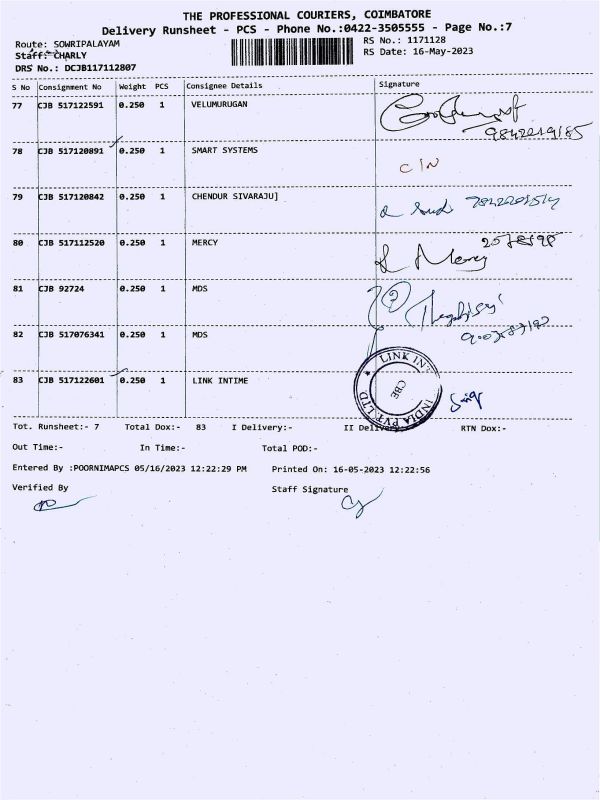 THE PROFESSIONAL COURIERS, COIMBATORE
Delivery Runsheet - PCS - Phone No.:0422-3505555 - Page No.:7
Route: SOWRIPALAYAM RS No.: 1171128
Staff: CHARLY RS Date: 16-May-2023
DRS No.: DCJB117112807
S No Consignment No Weight PCS Consignee Details Signature
77 CJB 517122591 0.250 1 VELUMURUGAN
78 CJB 517120891 0.250 1 SMART SYSTEMS
79 CJB 517120842 0.250 1 CHENDUR SIVARAJU]
80 CJB 517112520 0.250 1 MERCY Mercy
81 CJB 92724 0.250 1 MDS
82 CJB 517076341 0.250 1 MDS
83 CJB 517122601 0.250 1 LINK INTIME
LINK IN
INDIA PVT LTD
CBE
Tot. Runsheet:- 7 Total Dox:- 83 I Delivery:- II Delivery:- RTN Dox:-
Out Time:- In Time:- Total POD:-
Entered By :POORNIMAPCS 05/16/2023 12:22:29 PM Printed On: 16-05-2023 12:22:56
Verified By Staff Signature